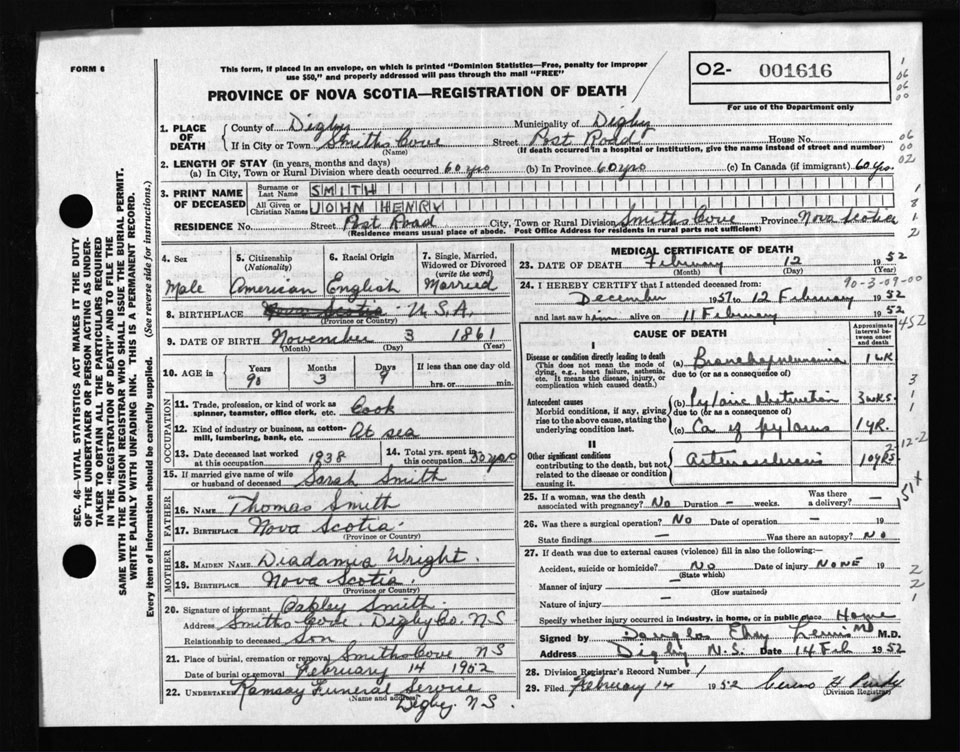 FORM 6
This form, if placed in an envelope, on which is printed "Dominion Statistics—Free, penalty for improper
use $50," and properly addressed will pass through the mail "FREE"
PROVINCE OF NOVA SCOTIA—REGISTRATION OF DEATH
02- 001616
For use of the Department only
1. PLACE OF DEATH
County of Digby Municipality of Digby
If in City or Town Smiths Cove Street Post Road House No.
(Name) (If death occurred in a hospital or institution, give the name instead of street and number)
2. LENGTH OF STAY (in years, months and days)
(a) In City, Town or Rural Division where death occurred 60 yrs (b) In Province 60 yrs (c) In Canada (if immigrant) 60 yrs.
3. PRINT NAME OF DECEASED
Surname or Last Name SMITH
All Given or Christian Names JOHN HENRY
RESIDENCE No. Street Post Road City, Town or Rural Division Smiths Cove Province Nova Scotia
(Residence means usual place of abode. Post Office Address for residents in rural parts not sufficient)
4. Sex Male
5. Citizenship (Nationality) American
6. Racial Origin English
7. Single, Married, Widowed or Divorced (write the word) Married
8. BIRTHPLACE Nova Scotia U.S.A.
(Province or Country)
9. DATE OF BIRTH November 3 1861
(Month) (Day) (Year)
10. AGE in Years 90 Months 3 Days 9 If less than one day old
hrs. or min.
OCCUPATION
11. Trade, profession, or kind of work as spinner, teamster, office clerk, etc. Cook
12. Kind of industry or business, as cotton-mill, lumbering, bank, etc. At sea
13. Date deceased last worked at this occupation 1938
14. Total yrs. spent in this occupation 50 yrs
15. If married give name of wife or husband of deceased Sarah Smith
FATHER
16. Name Thomas Smith
17. Birthplace Nova Scotia.
(Province or Country)
MOTHER
18. Maiden Name. Diadamia Wright.
19. Birthplace Nova Scotia.
(Province or Country)
20. Signature of informant Oakley Smith.
Address Smiths Cove. Digby Co. N.S
Relationship to deceased Son
21. Place of burial, cremation or removal Smiths Cove NS
Date of burial or removal February 14 1952
22. Undertaker Ramsay Funeral Service
(Name and address)
Digby. N.S.
MEDICAL CERTIFICATE OF DEATH
23. DATE OF DEATH February 12 1952
(Month) (Day) (Year)
90-3-09-00
24. I HEREBY CERTIFY that I attended deceased from:
December 1951 to 12 February 1952
and last saw him alive on 11 February 1952
452
CAUSE OF DEATH
Approximate interval between onset and death
I
Disease or condition directly leading to death
(This does not mean the mode of dying, e.g., heart failure, asthenia, etc. It means the disease, injury, or complication which caused death.)
(a) Bronchopneumonia 1 WK
due to (or as a consequence of)
Antecedent causes
Morbid conditions, if any, giving rise to the above cause, stating the underlying condition last.
(b) Pyloric obstruction 3 wks.
due to (or as a consequence of)
(c) Ca of pylorus 1 YR.
II
Other significant conditions
contributing to the death, but not related to the disease or condition causing it.
Arteriosclerosis 10 YRS.
2-12-2
151x
25. If a woman, was the death associated with pregnancy? No Duration – weeks. Was there a delivery? –
26. Was there a surgical operation? No Date of operation – 19
State findings – Was there an autopsy? No
27. If death was due to external causes (violence) fill in also the following:—
Accident, suicide or homicide? No Date of injury NONE 19
(State which)
Manner of injury –
(How sustained)
Nature of injury –
Specify whether injury occurred in industry, in home, or in public place Home
Signed by Douglas Lewis MD M.D.
Address Digby N.S. Date 14 Feb 1952
28. Division Registrar's Record Number 1
29. Filed February 14 1952 H Purdy
(Division Registrar)
SEC. 46—VITAL STATISTICS ACT MAKES IT THE DUTY
OF THE UNDERTAKER OR PERSON ACTING AS UNDER-
TAKER TO OBTAIN ALL THE PARTICULARS REQUIRED
IN THE "REGISTRATION OF DEATH" AND TO FILE THE
SAME WITH THE DIVISION REGISTRAR WHO SHALL ISSUE THE BURIAL PERMIT.
WRITE PLAINLY WITH UNFADING INK. THIS IS A PERMANENT RECORD.
Every item of information should be carefully supplied. (See reverse side for instructions.)